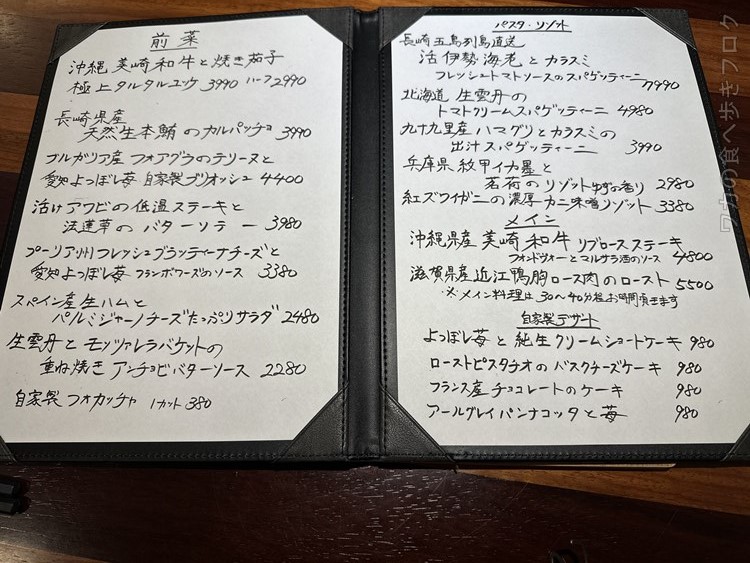 前菜
沖縄 美崎和牛と焼き茄子
極上タルタルユッケ 3990 ハーフ2990
長崎県産
天然生本鮪のカルパッチョ 3990
ブルガリア産 フォアグラのテリーヌと
愛知よつぼし苺 自家製ブリオッシュ 4400
活けアワビの低温ステーキと
法蓮草のバターソテー 3980
プーリア州フレッシュブラッティーナチーズと
愛知よつぼし苺 フランボワーズのソース 3380
スペイン産生ハムと
パルミジャーノチーズたっぷりサラダ 2480
生雲丹とモッツァレラバケットの
重ね焼き アンチョビバターソース 2280
自家製フォカッチャ 1カット 380
パスタ・リゾット
長崎五島列島直送
活伊勢海老とカラスミ
フレッシュトマトソースのスパゲッティーニ 7990
北海道 生雲丹の
トマトクリームスパゲッティーニ 4980
九十九里産ハマグリとカラスミの
出汁スパゲッティーニ 3990
兵庫県 紋甲イカ墨と
茗荷のリゾット ゆずの香り 2980
紅ズワイガニの濃厚カニ味噌リゾット 3380
メイン
沖縄県産 美崎和牛 リブロースステーキ
フォンドヴォーとマルサラ酒のソース 4800
滋賀県産近江鴨胸ロース肉のロースト 5500
※メイン料理は30〜40分程お時間頂きます
自家製デザート
よつぼし苺と純生クリームショートケーキ 980
ローストピスタチオのバスクチーズケーキ 980
フランス産チョコレートのケーキ 980
アールグレイパンナコッタと苺 980
ワカの食べ歩きブログ